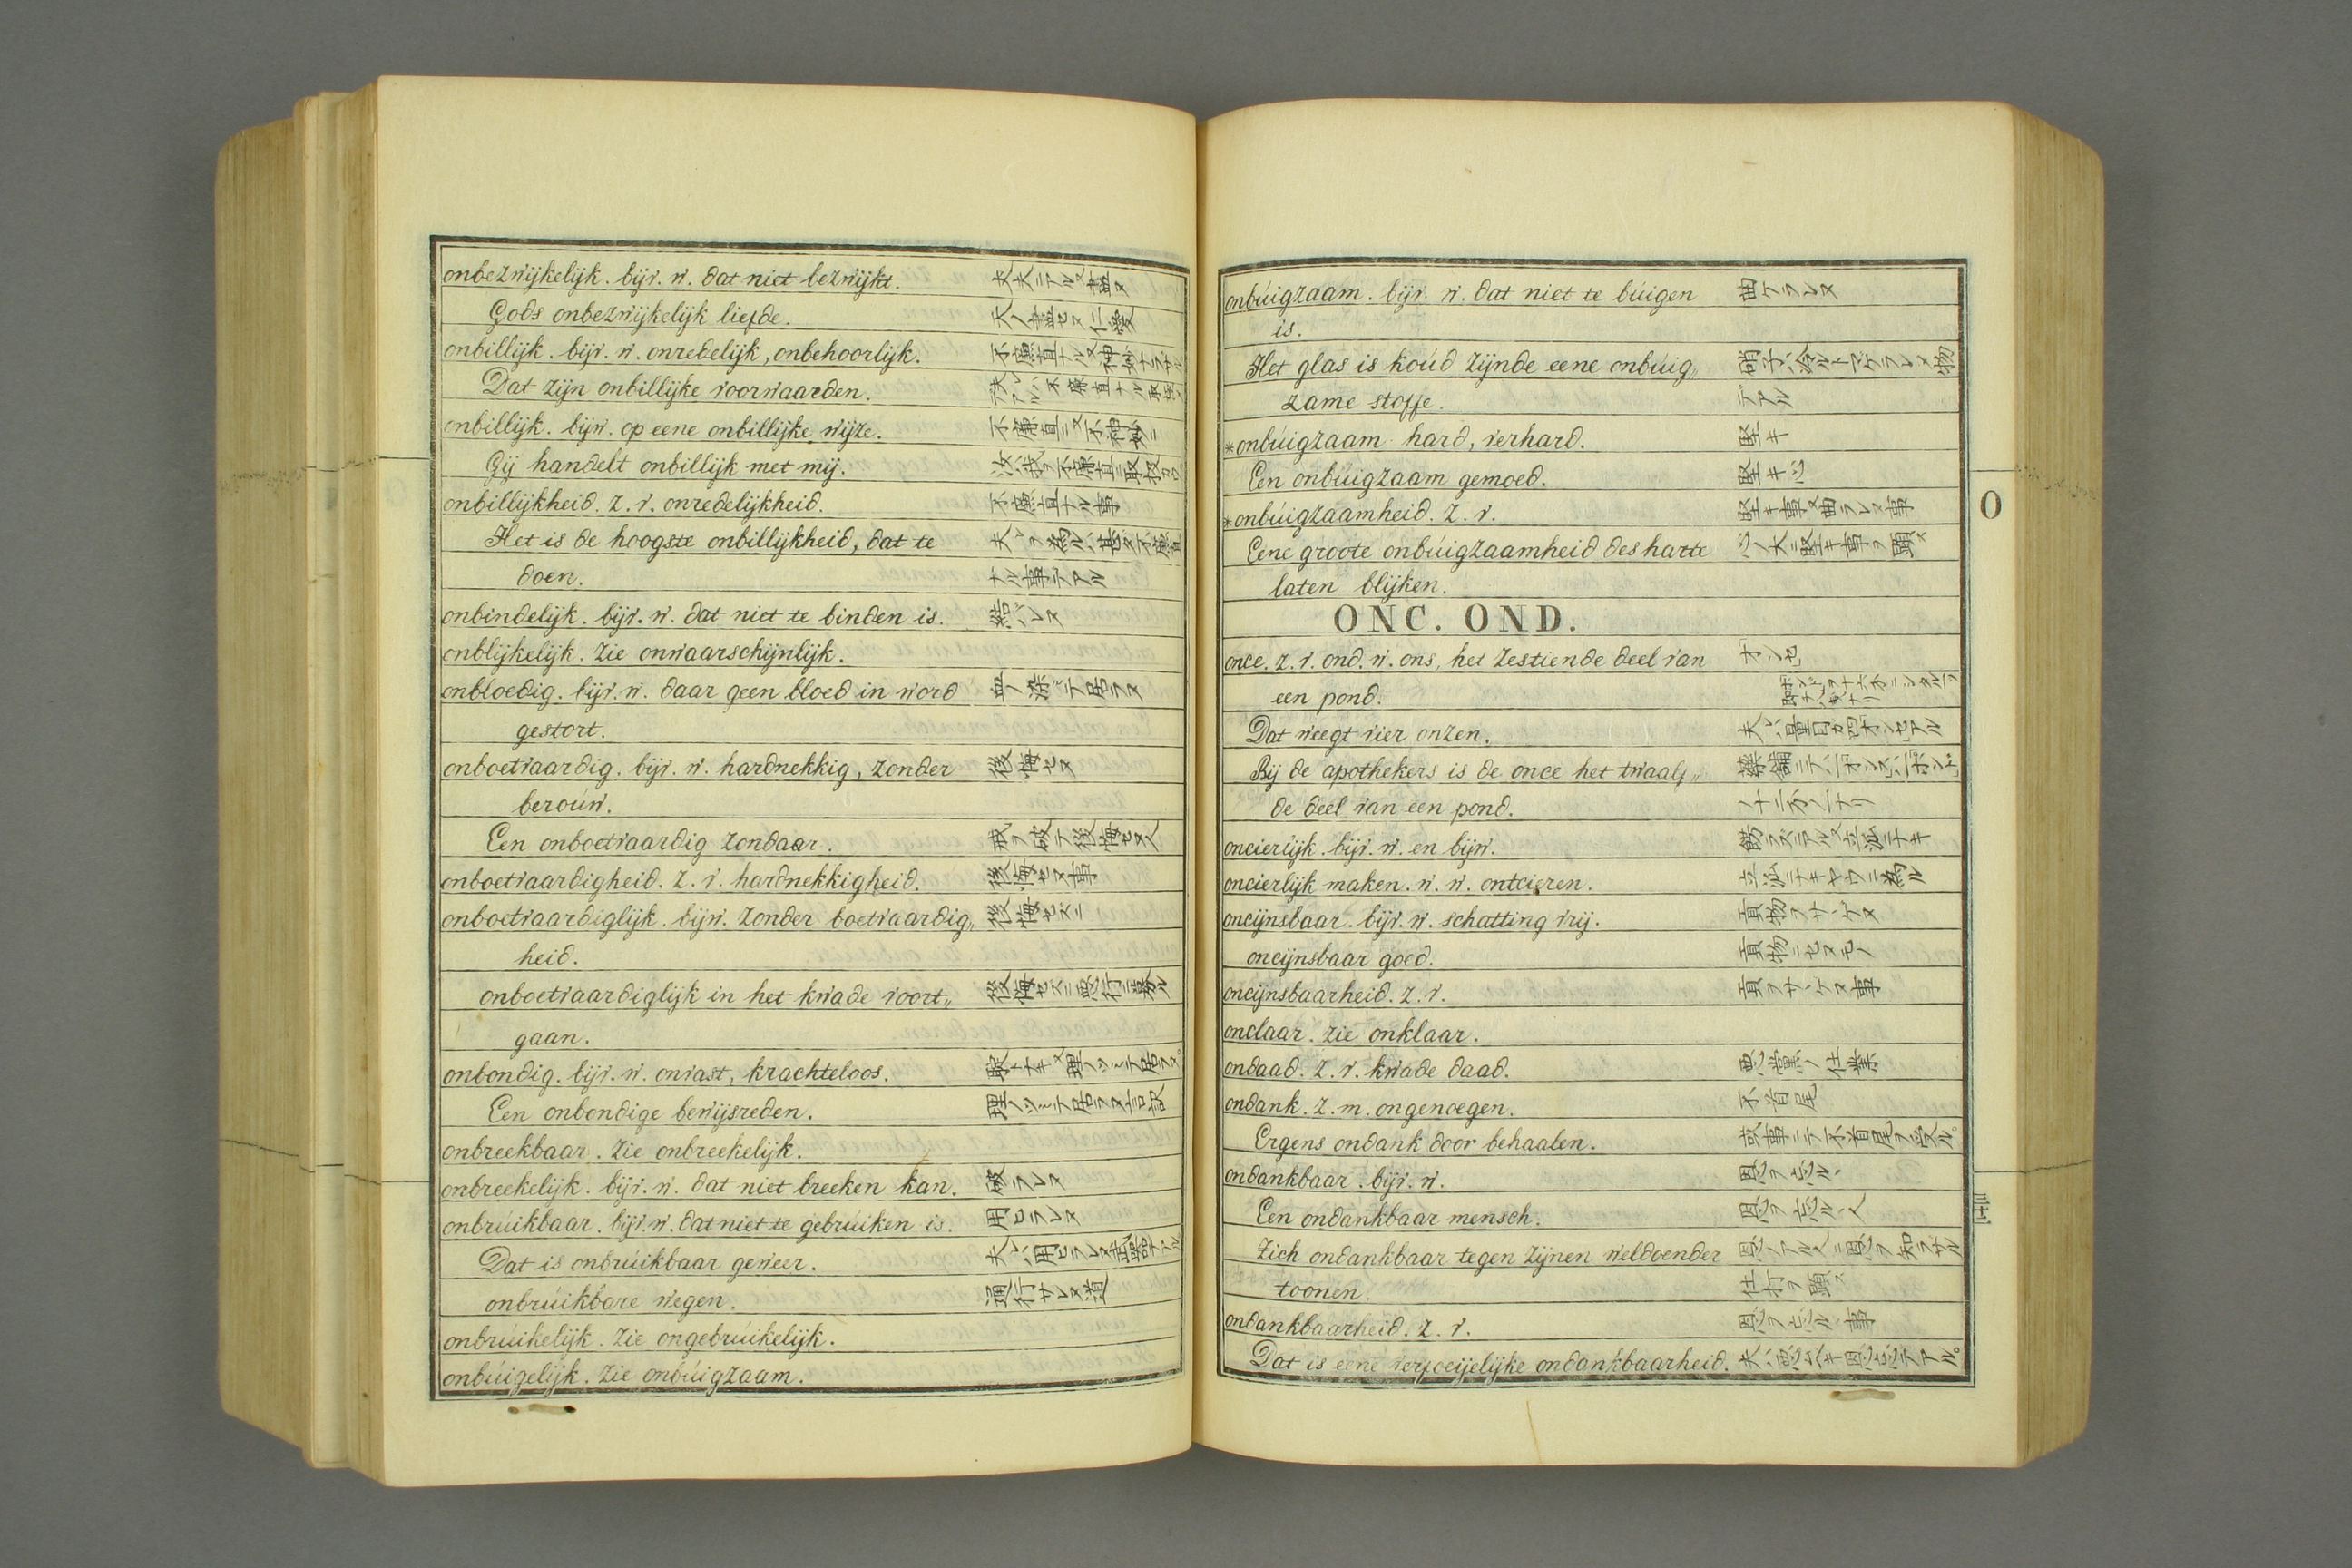 onbezwijkelijk. bijv. w. dat niet bezwijkt.
Gods onbezwijkelijk liefde. 天ノ盡セヌ仁愛
onbillijk. bijv. w. onredelijk, onbehoorlijk.
Dat zijn onbillijke voorwaarden.
onbillijk. bijw. op eene onbillijke wijze.
Gij handelt onbillijk met mij.
onbillijkheid. z. v. onredelijkheid. 不廉直ナル事
Het is de hoogste onbillijkheid, dat te
doen. ナル事デアル
onbindelijk. bijv. w. dat niet te binden is. 結バレヌ
onblijkelijk. zie onwaarschijnlijk.
onbloedig. bijv. w. daar geen bloed in word 血ノ添テ居ラヌ
gestort.
onboetvaardig. bijv. w. hardnekkig, zonder 後悔セヌ
berouw.
Een onboetvaardig zondaar. 戒ヲ破テ後悔セヌ人
onboetvaardigheid. z. v. hardnekkigheid. 後悔セヌ事
onboetvaardiglijk. bijw. zonder boetvaardig„ 後悔セズニ
heid.
onboetvaardiglijk in het kwade voort„ 後悔セズニ悪行ニ募ル
gaan.
onbondig. bijv. w. onvast, krachteloos.
Een onbondige bewijsreden.
onbreekbaar. zie onbreekelijk.
onbreekelijk. bijv. w. dat niet breeken kan. 破ラレヌ
onbrúikbaar. bijv. w. dat niet te gebrúiken is. 用ヒラレヌ
Dat is onbrúikbaar geweer. 夫ハ用ヒラレヌ武器デアル
onbrúikbare wegen. 通行サレヌ道
onbrúikelijk. zie ongebrúikelijk.
onbúigelijk. zie onbúigzaam.
onbúigzaam. bijv. w. dat niet te búigen 曲ケラレヌ
is.
Het glas is koúd zijnde eene onbúig„
zame stoffe. デアル
*onbúigzaam hard, verhard. 堅キ
Een onbúigzaam gemoed. 堅キ心
*onbúigzaamheid. z. v. 堅キ事又曲ラレヌ事
Eene groote onbúigzaamheid des harte 心ノ大ニ堅キ事ヲ顕ス
laten blijken.
ONC. OND.
once. z. v. ond. w. ons, het zestiende deel van オンセ
een pond.
Dat weegt vier onzen.
Bij de apothekers is de once het twaalf„
de deel van een pond. ノ十二分ノ一ナリ
oncierlijk. bijv. w. en bijw.
oncierlijk maken. w. w. ontcieren.
oncijnsbaar. bijv. w. schatting vrij. 貢物ヲサヽケヌ
oncijnsbaar goed. 貢物ニセヌモノ
oncijnsbaarheid. z. v. 貢ヲサヽケヌ事
onclaar. zie onklaar.
ondaad. z. v. kwade daad. 悪黨ノ仕業
ondank. z. m. ongenoegen. 不首尾
Ergens ondank door behaalen. 或事ニテ不首尾ヲ受ル。
ondankbaar. bijv. w. 恩ヲ忘ルヽ
Een ondankbaar mensch. 恩ヲ忘ルヽ人
Zich ondankbaar tegen zijnen weldoender 恩ノアル人ニ恩ヲ知ラザル
toonen. 仕打ヲ顕ス
ondankbaarheid. z. v. 恩ヲ忘ルヽ事
Dat is eene verfoeijelijke ondankbaarheid.
O